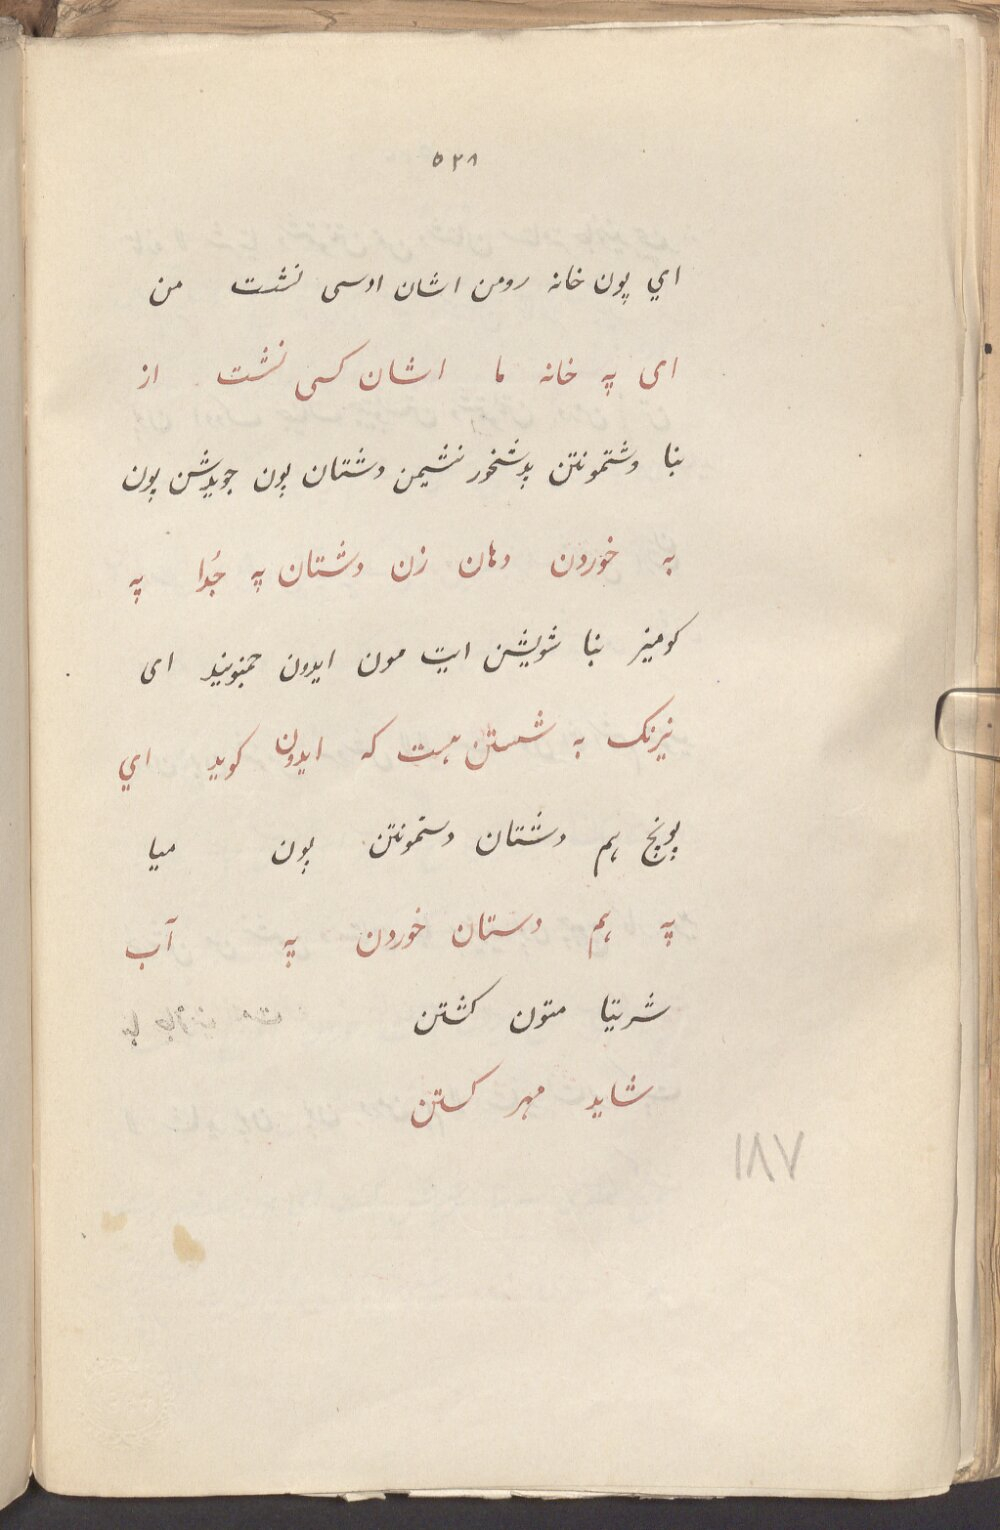 ۵۲۸
اي پون خانه رومن اشان اوسی نشت من
ای په خانه ما اشان کسی نشت از
بنا وشتمونتن پدشخور نشیمن وشتان پون جویدشن پون
به خوردن دهان زن دشتان په جُدا په
کومیز بنا شویشن ایت مون ایدون جمنویند ای
نیرنک به شستن هست که ایدون کوید اي
پونج هم دشتان وستمونتن پون میا
په هم دستان خوردن په آب
شریتیا متون کشتن
شاید مهر کستن
۱۸۷